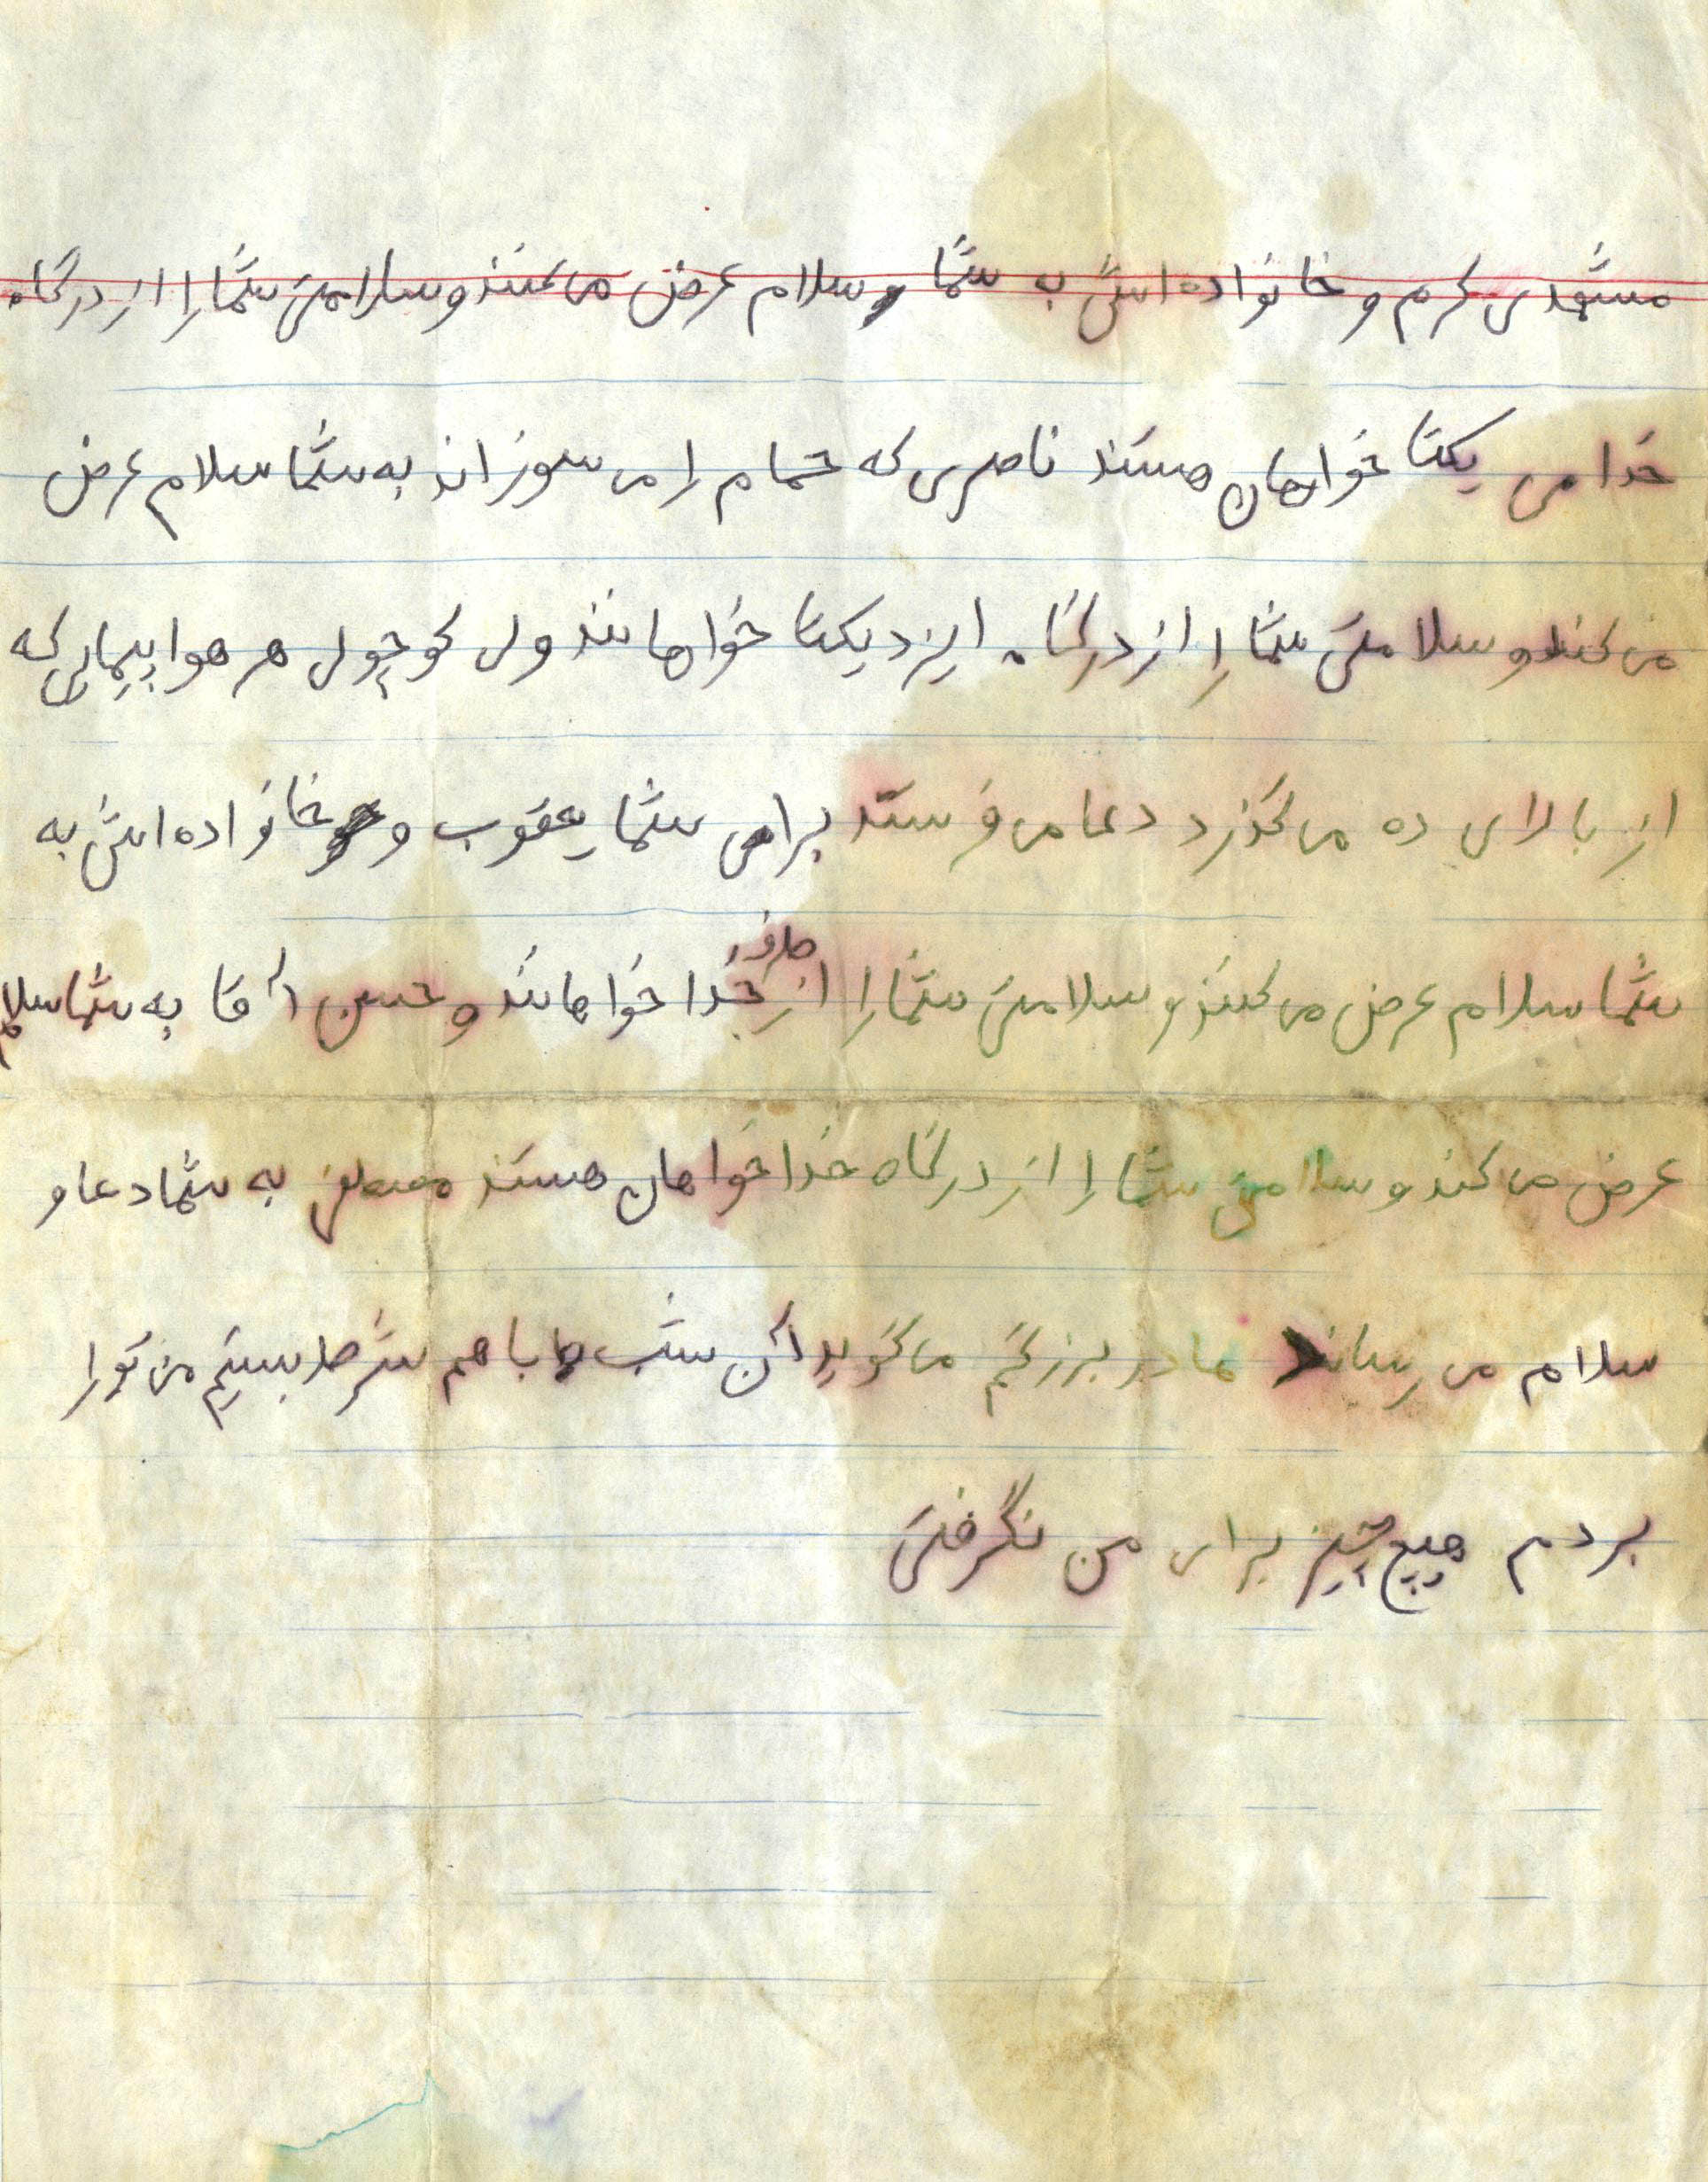 مشهدی کرم و خانواده اش به شما و سلام عرض می کنند و سلامتی شما را از درگاه
خدای یکتا خواهان هستند ناصری که حمام را می سوزاند به شما سلام عرض
می کند و سلامتی شما را از درگاه ایزد یکتا خواهانند ول کوچول هر هواپیمایی که
از بالای ده می گذرد دعا می فرستد برای شما یعقوب و خانواده اش به
شما سلام عرض می کنند و سلامتی شما را از خدا خواهانند و حسن آقا به شما سلام
عرض می کند و سلامتی شما را از درگاه خدا خواهان هستند به شما دعا و
سلام می رساند مادر بزرگم می گوید آن شب با هم شرط بستیم من تو را
بردم هیچ چیز برای من نگرفتی